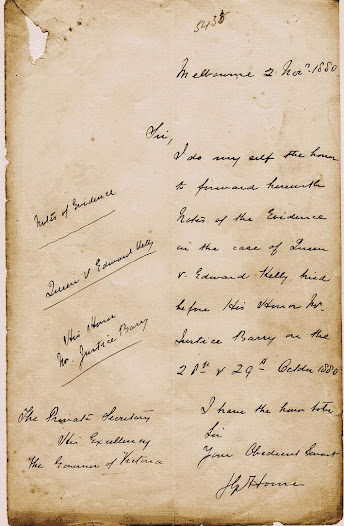 5435
Melbourne 2 Nov. 1880
Sir,
I do my self the honor
to forward herewith
Notes of the Evidence
in the case of Queen
v. Edward Kelly tried
before His Honor Mr.
Justice Barry on the
28th & 29th October 1880
I have the honor to be
Sir
Your Obedient Servant
Notes of Evidence
Queen v Edward Kelly
His Honor
Mr. Justice Barry
The Private Secretary
His Excellency
The Governor of Victoria